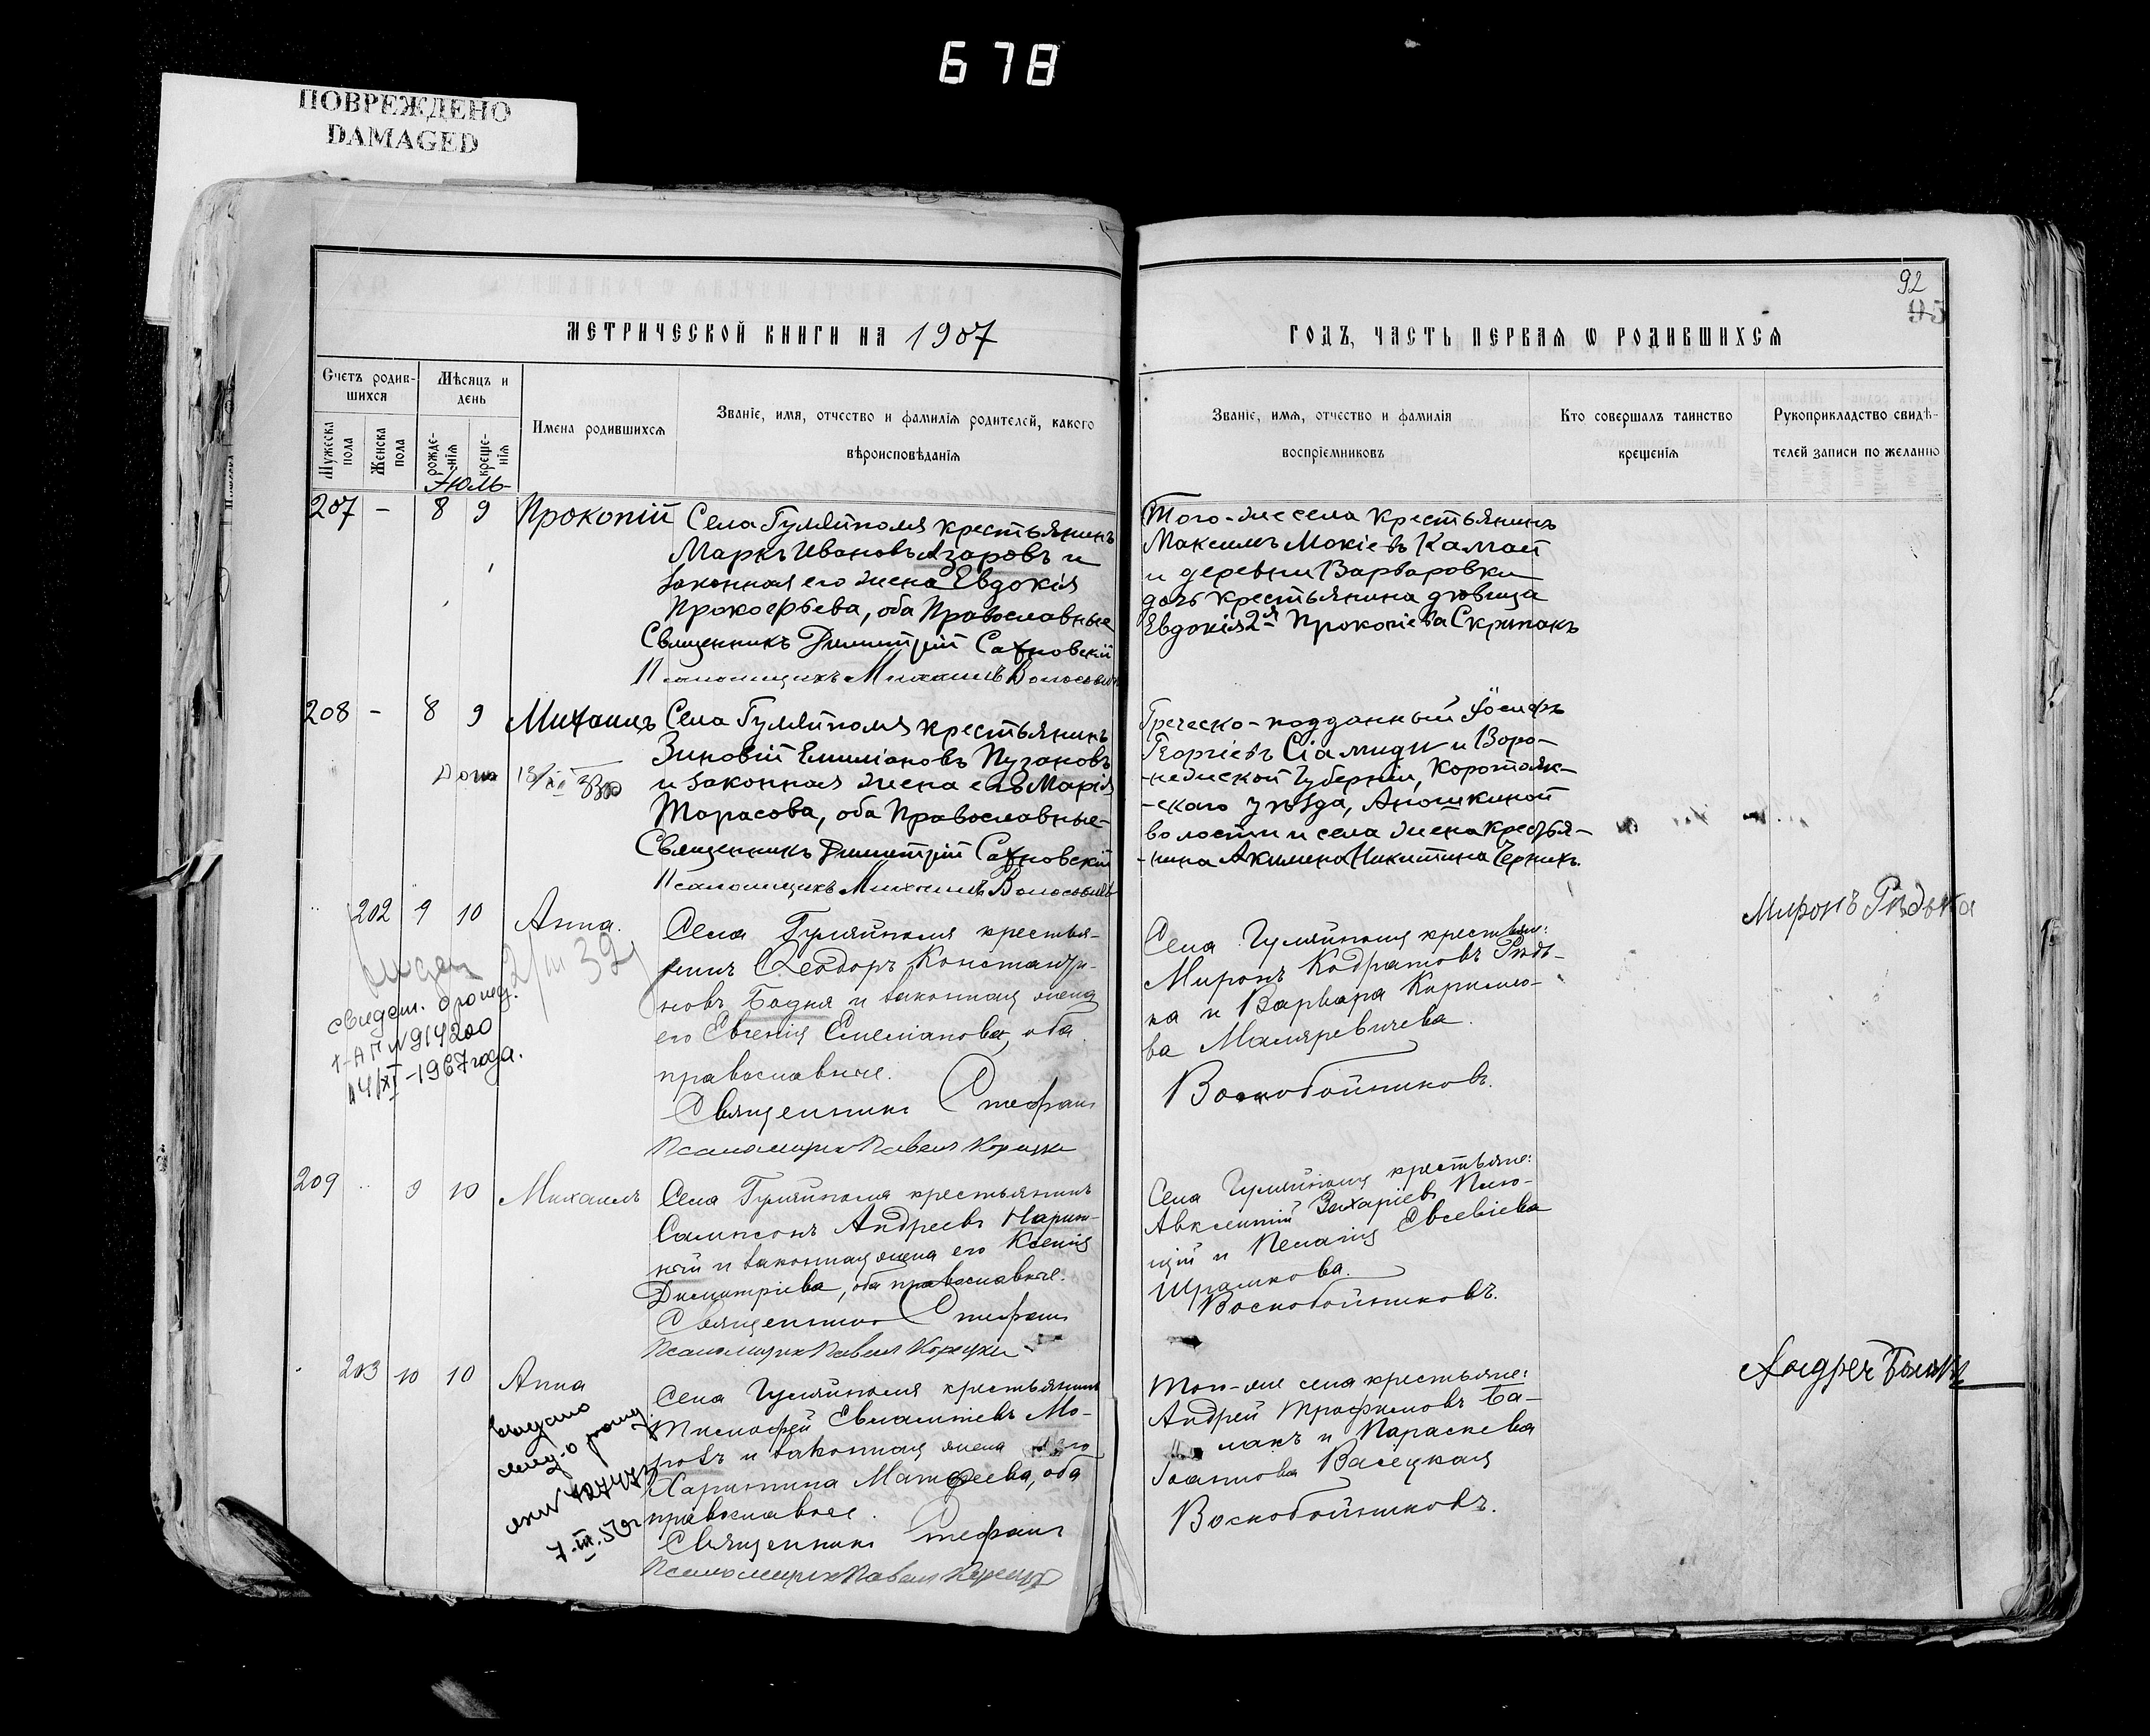 678
ПОВРЕЖДЕНО
DAMAGED
92
95
МЕТРИЧЕСКОЙ КНИГИ НА 1907
ГОДЪ, ЧАСТЬ ПЕРВАЯ Ѡ РОДИВШИХСЯ
Счетъ родив-
шихся
Мужеска пола
Женска пола
Мѣсяцъ и
день
рожде-
нія
креще-
нія
Имена родившихся
Званіе, имя, отчество и фамилія родителей, какого
вѣроисповѣданія
Званіе, имя, отчество и фамилія
воспріемниковъ
Кто совершалъ таинство
крещенія
Рукоприкладство свидѣ-
телей записи по желанію
Іюль
207 - 8 9 Прокопій
Села Гуляйполя крестьянинъ
Маркъ Ивановъ Азаровъ и
законная его жена Евдокія
Прокофьева, оба Православные
Священникъ Димитрій Сахновскій
Псаломщикъ Михаилъ
Того-же села крестьянинъ
Максимъ Мокіевъ Камай
и деревни Варваровки
дочь крестьянина дѣвица
Евдокія 2я Прокопіева Скрыпакъ
208 - 8 9 Михаилъ
Села Гуляйполя крестьянинъ
Зиновій Емиліановъ Пузановъ
и законная жена его Марія
Тарасова, оба Православные
Священникъ Димитрій Сахновскій
Псаломщикъ Михаилъ
Греческо-подданный Іосифъ
Георгіевъ Сіамиди и Воро-
-нежской Губерніи, Коротояк-
-скаго уѣзда, Аношкиной
волости и села жена крестья-
-нина Акилина Никитина Черникъ.
202 9 10 Анна.
Села Гуляйполя крестья-
нинъ Ѳеодоръ Константи-
новъ Бодня и законная жена
его Евгенія Емеліанова, оба
православные.
Священникъ Стефанъ
Псаломщикъ Павелъ Корецкій
Села Гуляйполя крестьяне:
Миронъ Кодратовъ Рѣдь-
ка и Варвара Кирилло-
ва Маляревичева.
Воскобойниковъ.
Миронъ Рѣдька
32
свидет. о рожд.
1-АП № 914200
14/XI-1967 года.
209 9 10 Михаилъ
Села Гуляйполя крестьянинъ
Сампсонъ Андреевъ Нариж-
ный и законная жена его Ксенія
Димитріева, оба православные.
Священникъ Стефанъ
Псаломщикъ Павелъ Корецкій
Села Гуляйполя крестьяне:
Авксентій Захаріевъ
и Пелагія Евсевіева
Шрамкова.
Воскобойниковъ.
203 10 10 Анна
Села Гуляйполя крестьянинъ
Тимофей Евлампіевъ Мо-
ровъ и законная жена его
Харитина Матфеева, оба
православные.
Священникъ Стефанъ
Псаломщикъ Павелъ Корецкій
Того-же села крестьяне:
Андрей Трофимовъ Ба-
лакъ и Параскева
Іоаннова Васецкая
Воскобойниковъ.
Андрей
выдано